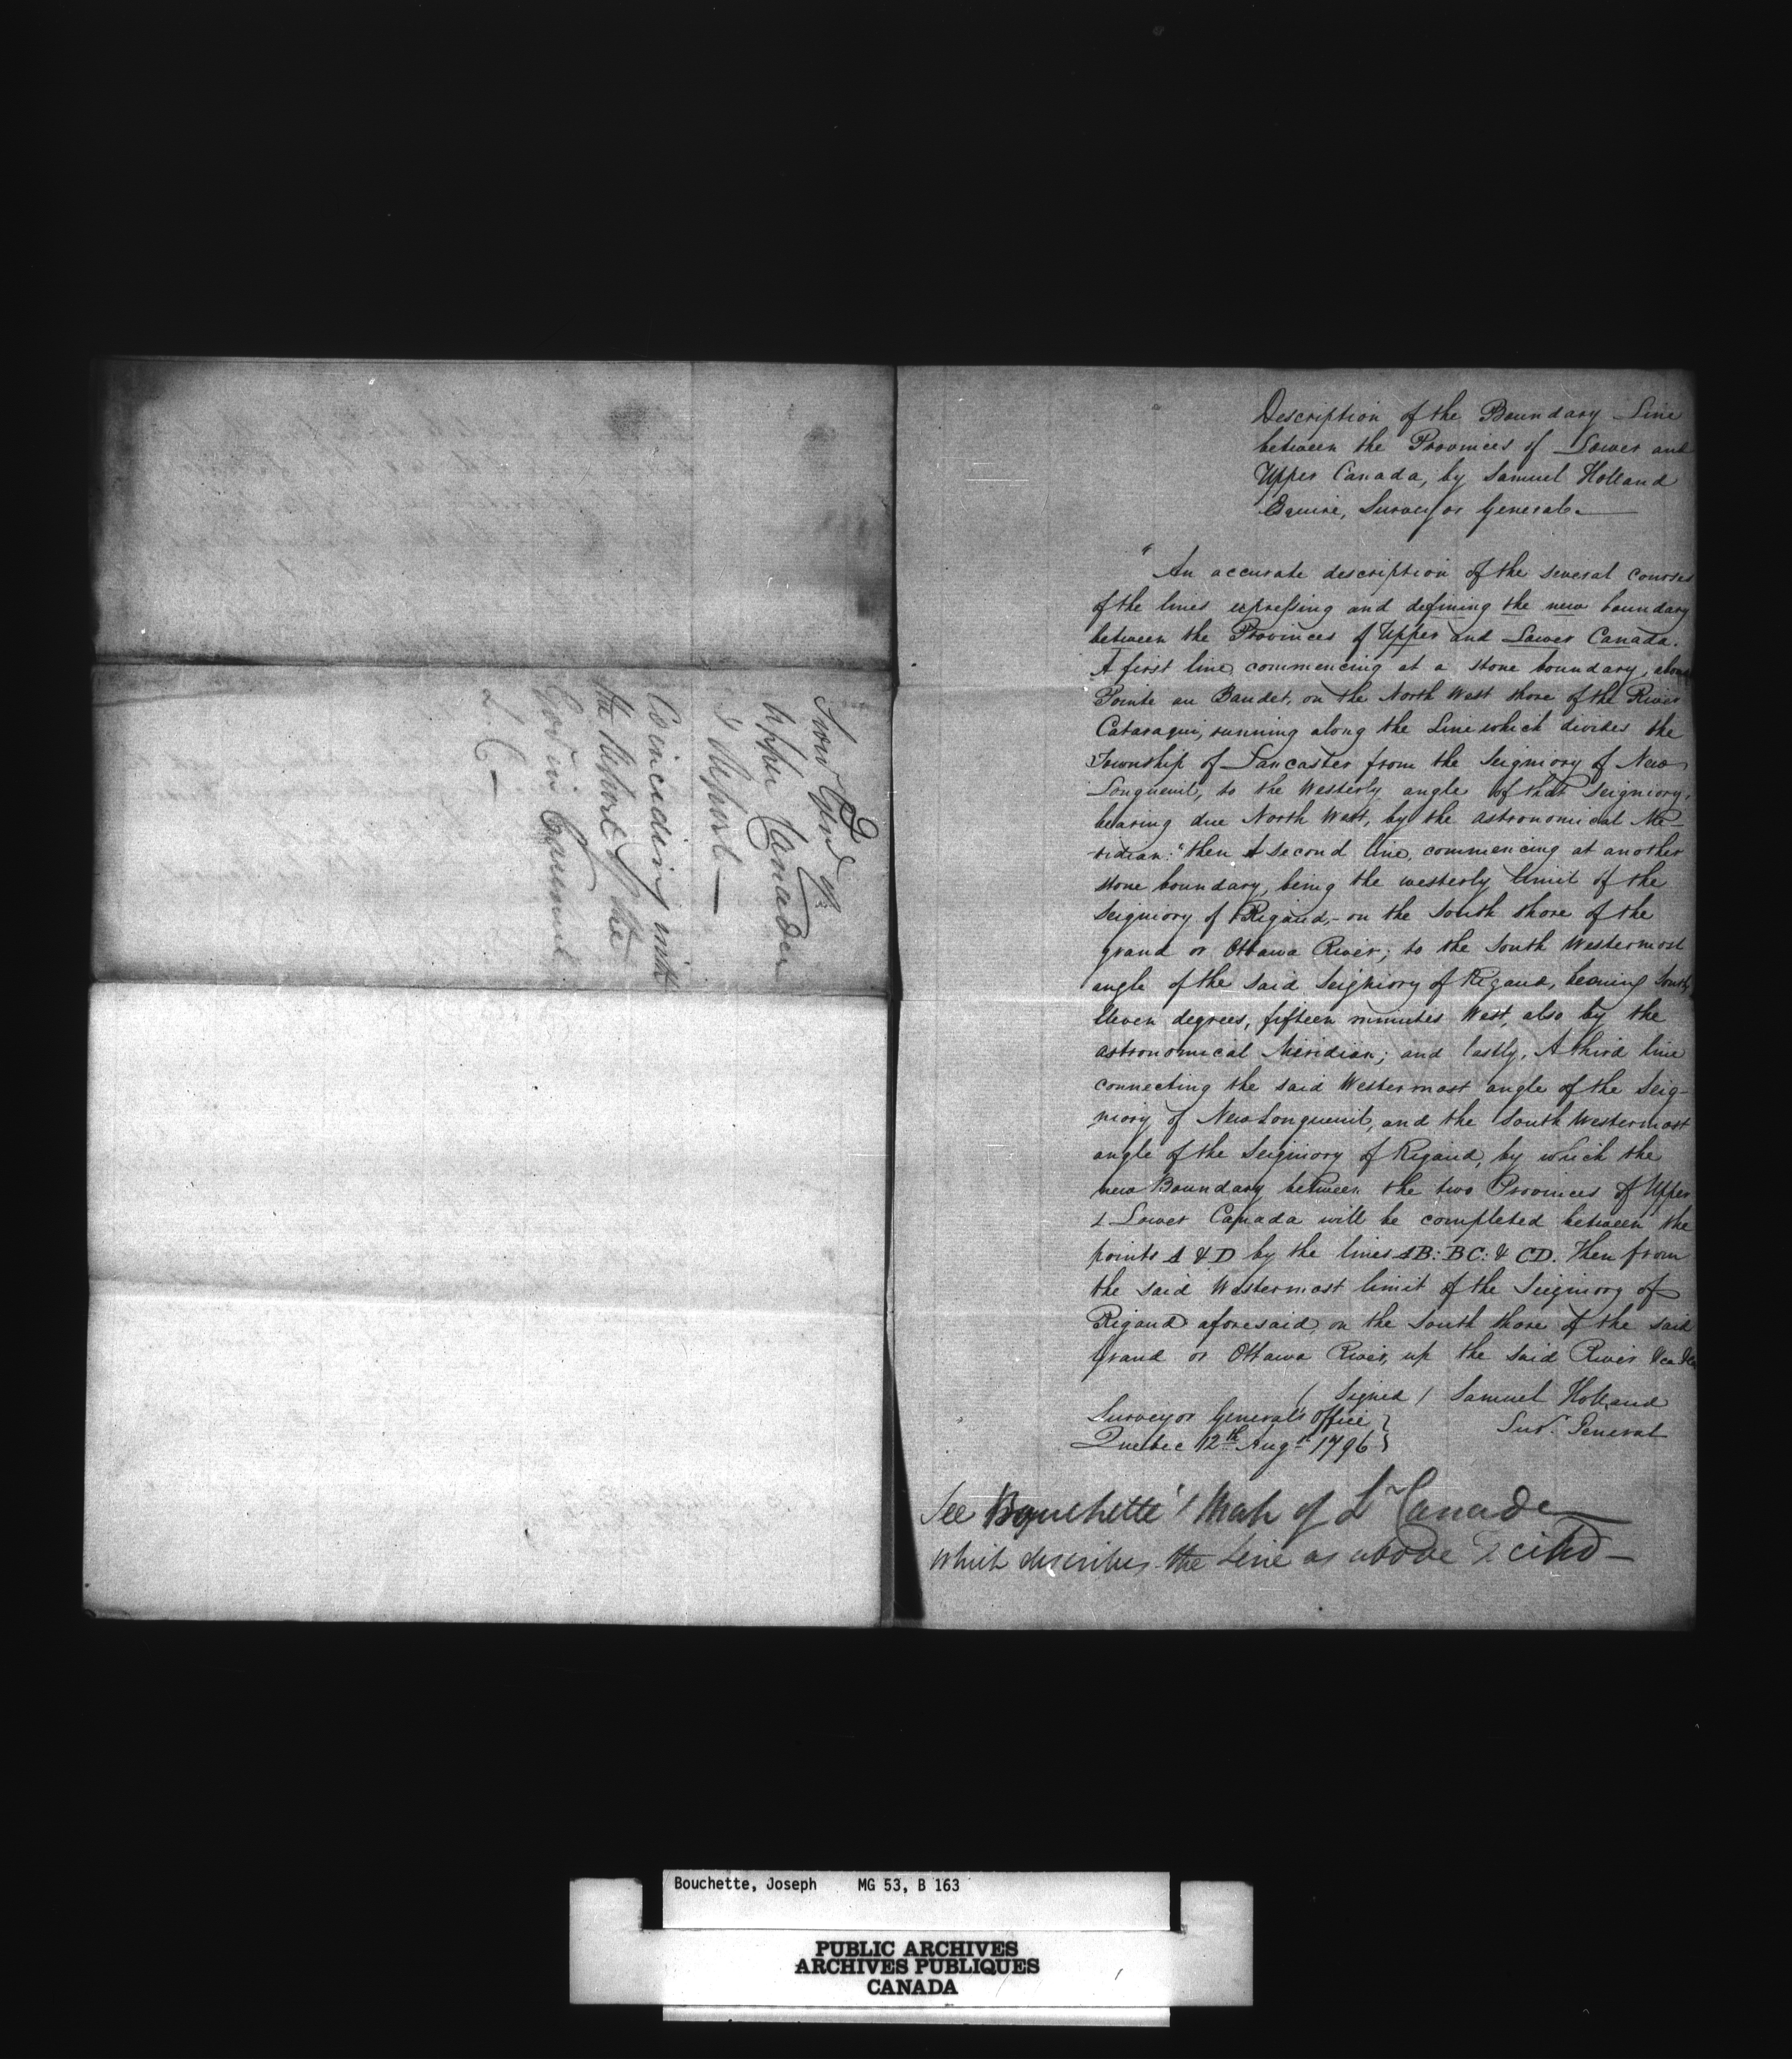 Upper Canada
's Report —
Coinciding with
the Report of the
Gov in Council
L. C —
Description of the Boundary Line
between the Provinces of Lower and
Upper Canada, by Samuel Holland
Esquire, Surveyor General. —
"An accurate description of the several courses
of the lines expressing and defining the new boundary
between the Provinces of Upper and Lower Canada.
A first line, commencing at a stone boundary, above
Pointe au Baudet, on the North West shore of the River
Cataraqui, running along the Line which divides the
Township of Lancaster from the Seigniory of New
Longueuil, to the Westerly angle of that Seigniory,
bearing due North West, by the astronomical Me-
ridian: "then A second line, commencing at another
stone boundary, being the westerly limit of the
Seigniory of Rigaud, - on the South shore of the
grand or Ottawa River; to the South Westermost
angle of the said Seigniory of Rigaud, bearing South
Eleven degrees, fifteen minutes West, also by the
astronomical Meridian; and lastly, A third line
connecting the said Westermost angle of the Seig-
niory of New Longueuil, and the South Westermost
angle of the Seigniory of Rigaud, by which the
new Boundary between the two Provinces of Upper
& Lower Canada will be completed between the
points A & D by the lines AB: BC: & CD. Then from
the said Westermost limit of the Seigniory of
Rigaud aforesaid, on the South shore of the said
Grand or Ottawa River, up the said River &ca &ca
(Signed) Samuel Holland
Surv. General
Surveyor General's Office }
Quebec 12th Augst 1796 }
See Bouchette's Map of Lr Canada
which describes the Line as above
Bouchette, Joseph MG 53, B 163
PUBLIC ARCHIVES
ARCHIVES PUBLIQUES
CANADA